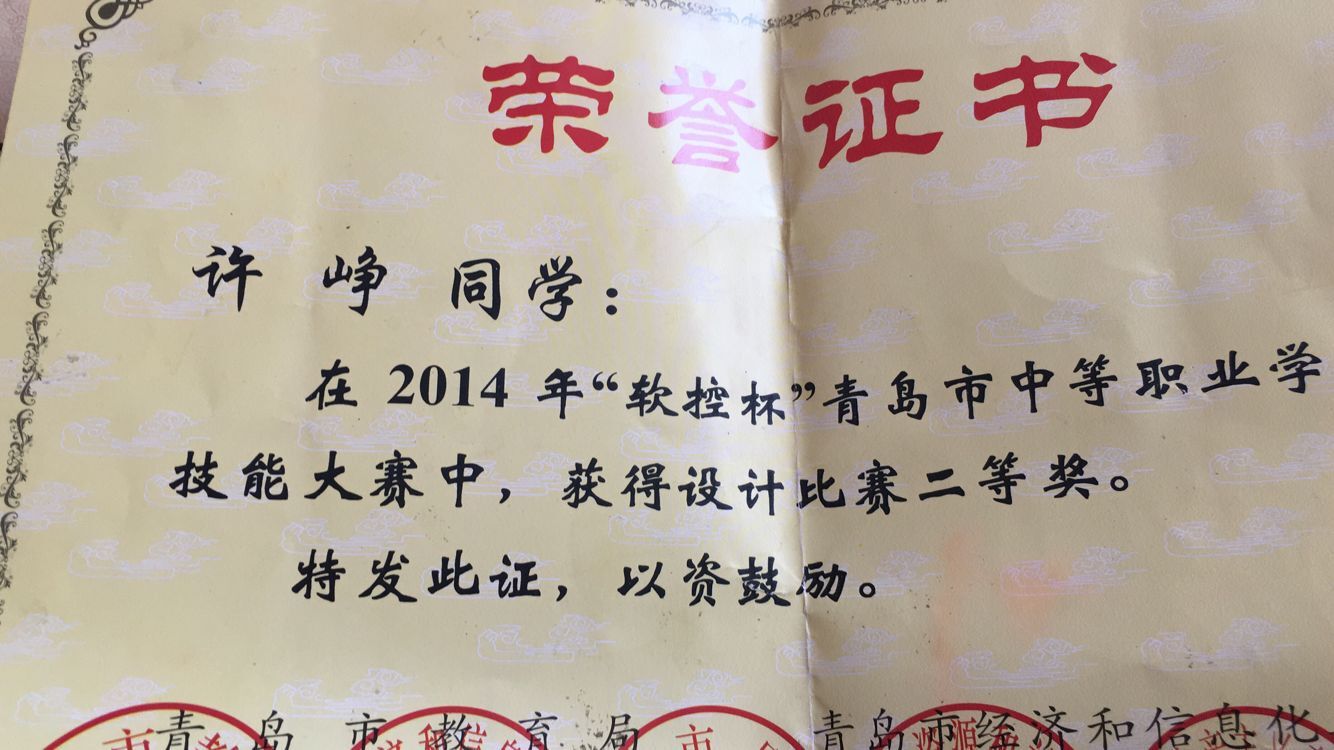 荣誉证书
许 峥 同学：
在 2014 年“软控杯”青岛市中等职业学
技能大赛中，获得设计比赛二等奖。
特发此证，以资鼓励。
青岛市教育局 青岛市经济和信息化